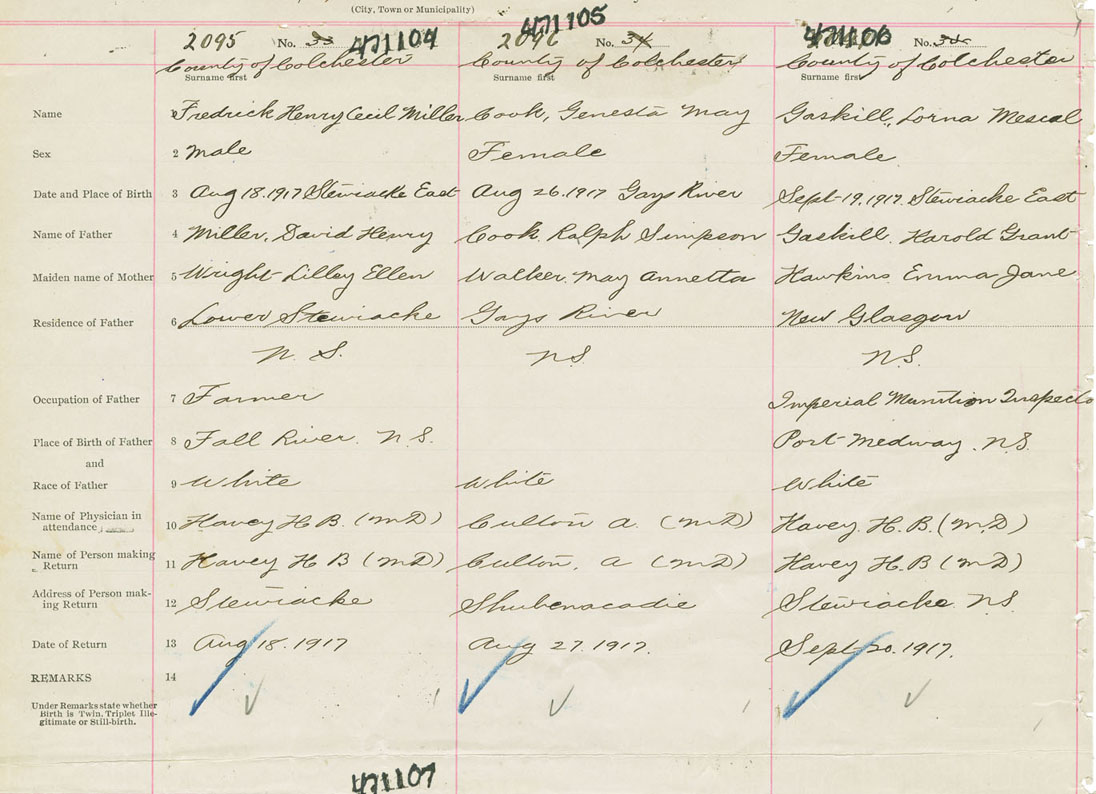 (City, Town or Municipality)
2095 No. 33 471104 2096 No. 34 471105 471106 No. 35
County of Colchester County of Colchester County of Colchester
Surname first Surname first Surname first
Name 1 Fredrick Henry Cecil Miller Cook, Genesta May Gaskill, Lorna Mescal
Sex 2 Male Female Female
Date and Place of Birth 3 Aug 18.1917 Stewiacke East Aug 26.1917 Gays River Sept 19.1917. Stewiacke East
Name of Father 4 Miller, David Henry Cook, Ralph Simpson Gaskill, Harold Grant
Maiden name of Mother 5 Wright Lilley Ellen Walker, May Annetta Hawkins Emma Jane
Residence of Father 6 Lower Stewiacke Gays River New Glasgow
N. S. N.S. N.S.
Occupation of Father 7 Farmer Imperial Munition Inspecto
Place of Birth of Father 8 Fall River. N.S. Port Medway. N.S.
and
Race of Father 9 White White White
Name of Physician in
attendance 10 Havey H. B. (M.D) Culton A. (M.D) Havey. H. B. (M.D)
Name of Person making
Return 11 Havey H B (M.D) Culton, A (M.D) Havey H. B (M.D)
Address of Person mak-
ing Return 12 Stewiacke Shubenacadie Stewiacke N.S.
Date of Return 13 Aug 18.1917 Aug 27.1917. Sept 20.1917.
REMARKS 14
Under Remarks state whether
Birth is Twin, Triplet Ille-
gitimate or Still-birth.
471107